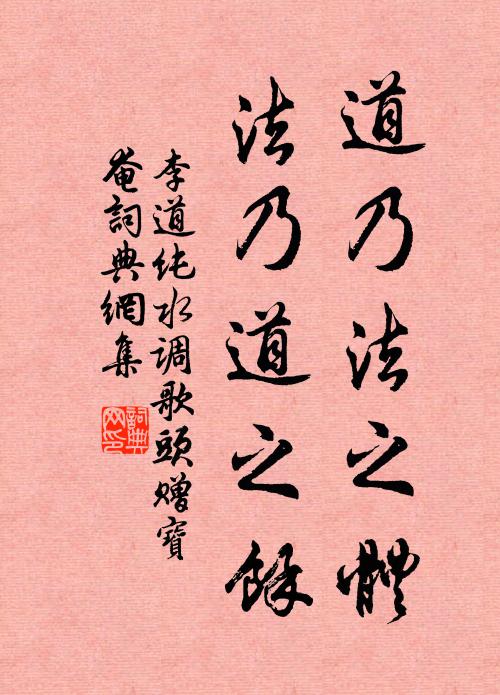 道乃法之體
法乃道之餘
李道纯水调歌頭贈寶
菴詞典網集
詞典网印